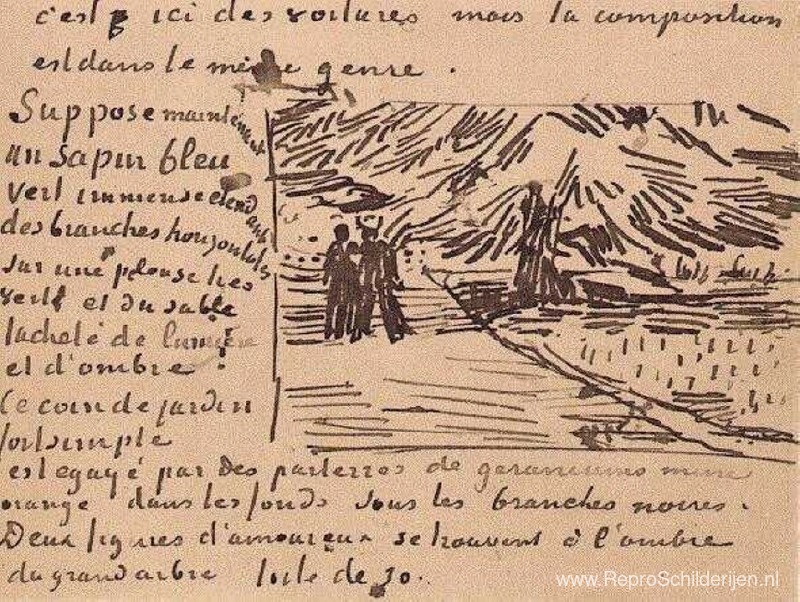 c'est ici des voitures mais la composition
est dans le même genre.
Suppose maintenant
un sapin bleu
vert immense etendant
des branches horizontales
sur une pelouse tres
verte et du sable
tacheté de lumière
et d'ombre
Ce coin de jardin
fort simple
est egayé par des parterres de geraniums mine
orange dans les fonds sous les branches noires.
Deux figures d'amoureux se trouvent à l'ombre
du grand arbre toile de 30.
www.ReproSchilderijen.nl